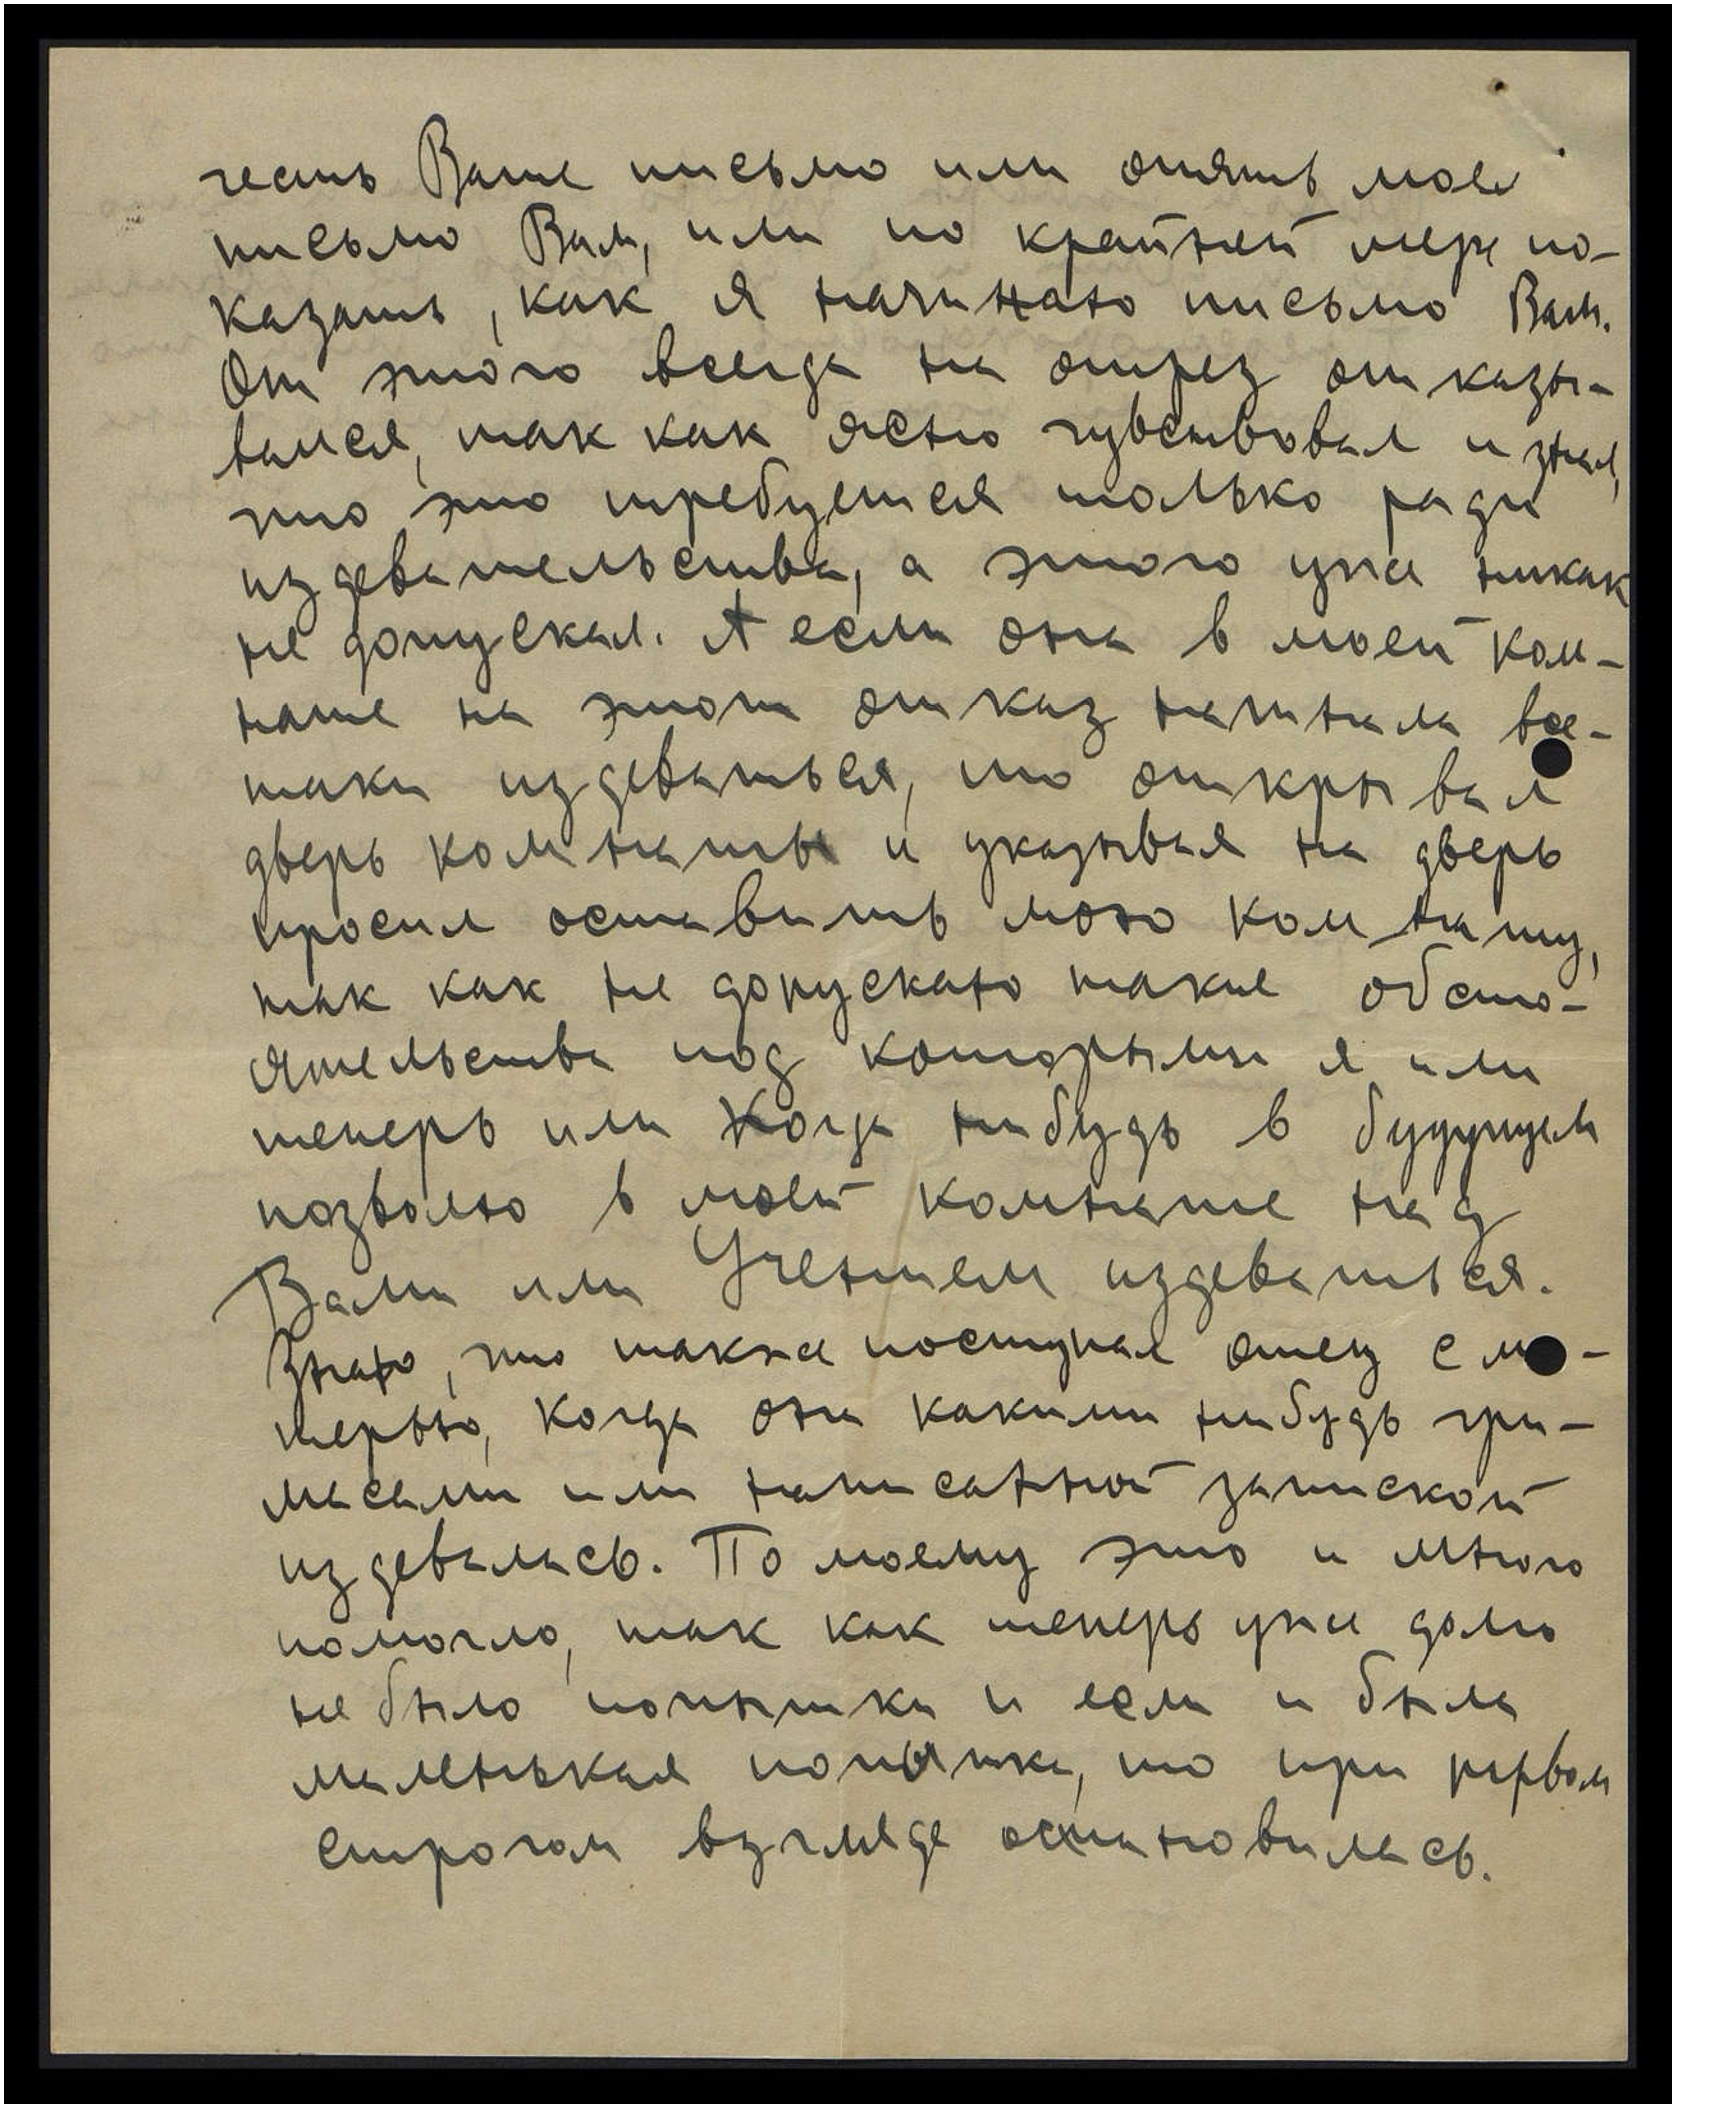 честь Ваше письмо или опять мое
письмо Вам, или по крайней мере по-
казать, как я начинаю письмо Вам.
От этого всегда на отрез отказы-
вался, так как ясно чувствовал и знал,
что это требуется только ради
издевательства, а этого уже никак
не допускал. А если она в моей ком-
нате на этот отказ начинала все-
таки издеваться, то открывал
дверь комнаты и указывая на дверь
просил оставить мою комнату,
так как не допускаю такие обсто-
ятельства под которыми я или
теперь или когда нибудь в будущем
позволю в моей комнате над
Вами или Учением издеваться.
Знаю, что также поступал отец с ма-
терью, когда они какими нибудь гри-
масами или написанной запиской
издевались. По моему это и много
помогло, так как теперь уже долго
не было попытки и если и была
маленькая попытка, то при первом
строгом взгляде остановилась.